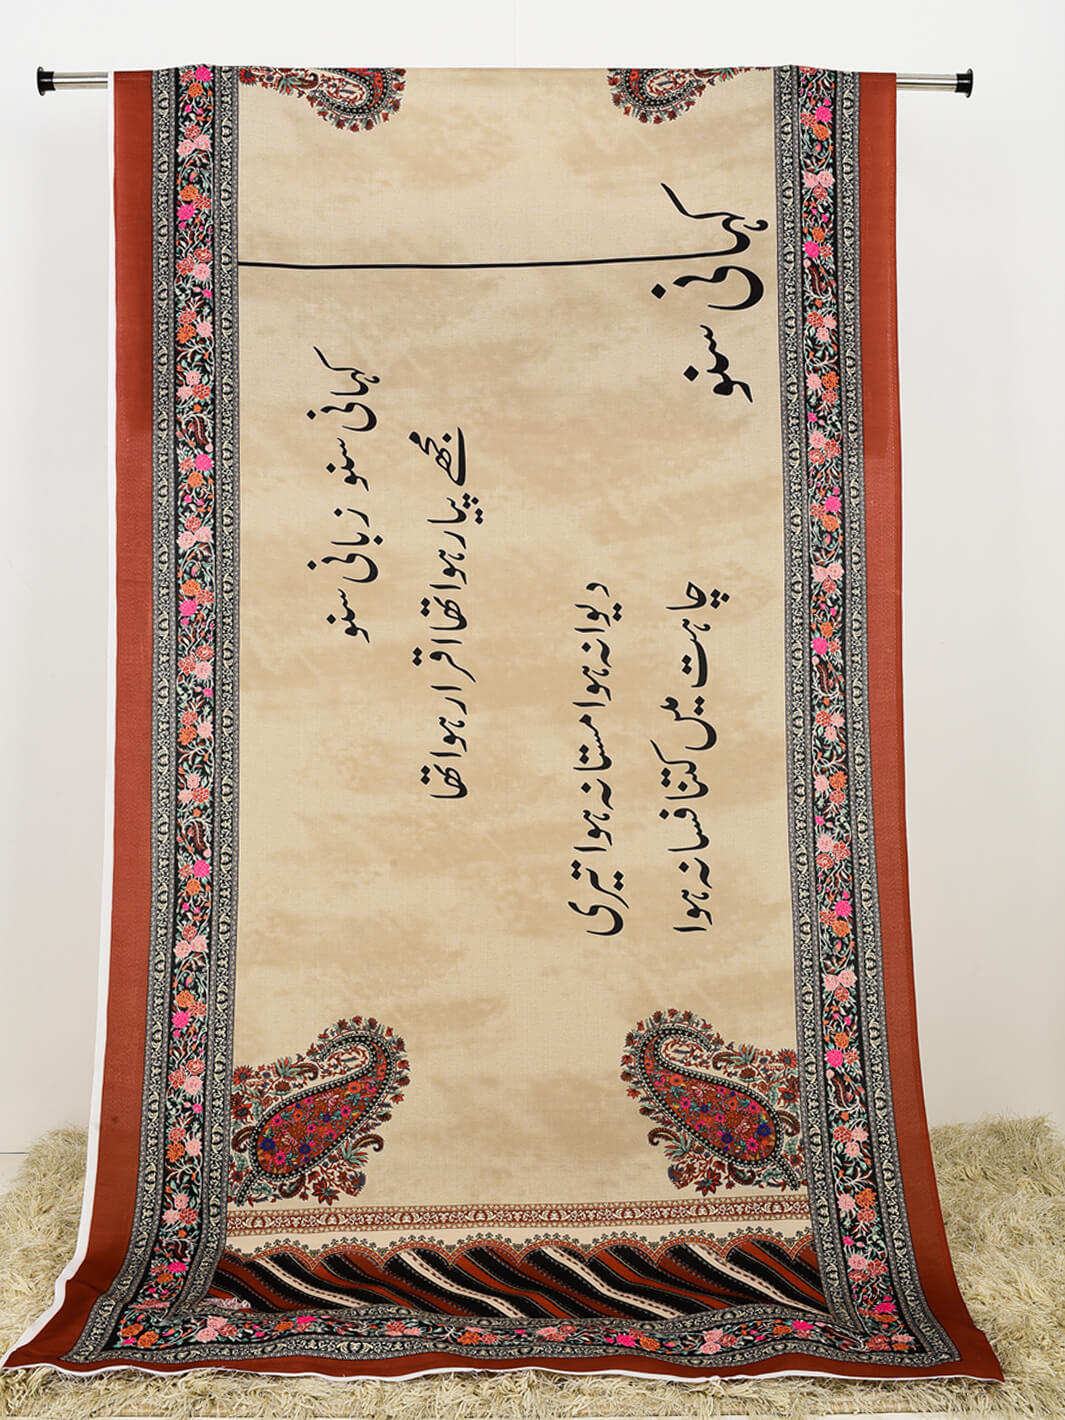 کہانی سنو
کہانی سنو زبانی سنو
مجھے پیار ہوا تھا اقرار ہوا تھا
دیوانہ ہوا مستانہ ہوا تیری
چاہت میں کتنا فسانہ ہوا